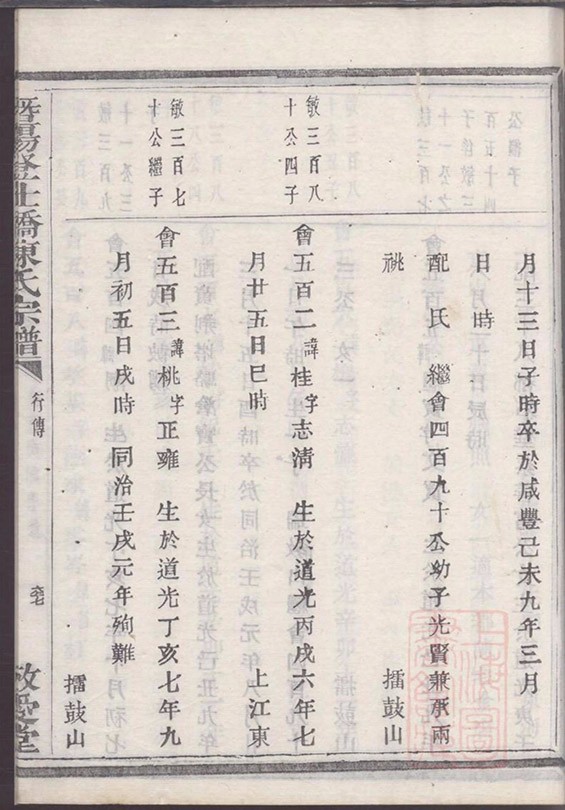 月十三日子時卒於咸豐己未九年三月
日 時
配 氏 繼會四百九十公幼子光賢兼承兩
祧 擂鼓山
敏三百八
十公四子
會五百二諱桂字志清 生於道光丙戌六年七
月廿五日巳時 上江東
敏三百七
十公繼子
會五百三諱桃字正雍 生於道光丁亥七年九
月初五日戌時 同治壬戌元年殉難 擂鼓山
暨陽登仕橋陳氏宗譜
行傳
敬愛堂